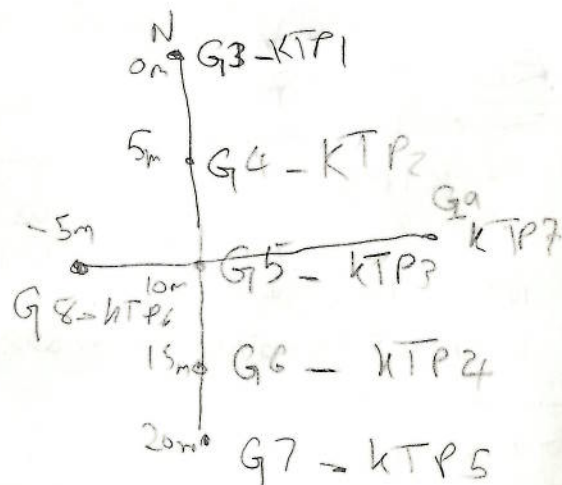 N
0m G3-KTP1
5m G4 - KTP2
G9
-5m KTP7
10m G5 - KTP3
G8-KTP6
15m G6 - KTP4
20m G7 - KTP5